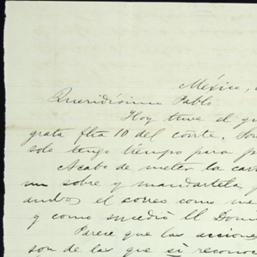 México,
Queridísimo Pablo
Hoy tuve el gu
grata fha 10 del corte.
solo tengo tiempo para p
Acabo de meter la car
un sobre y mandartela p
ambos el correo como me
y como sucedió el Dom
Parece que las acciones
son de las que si reconoc